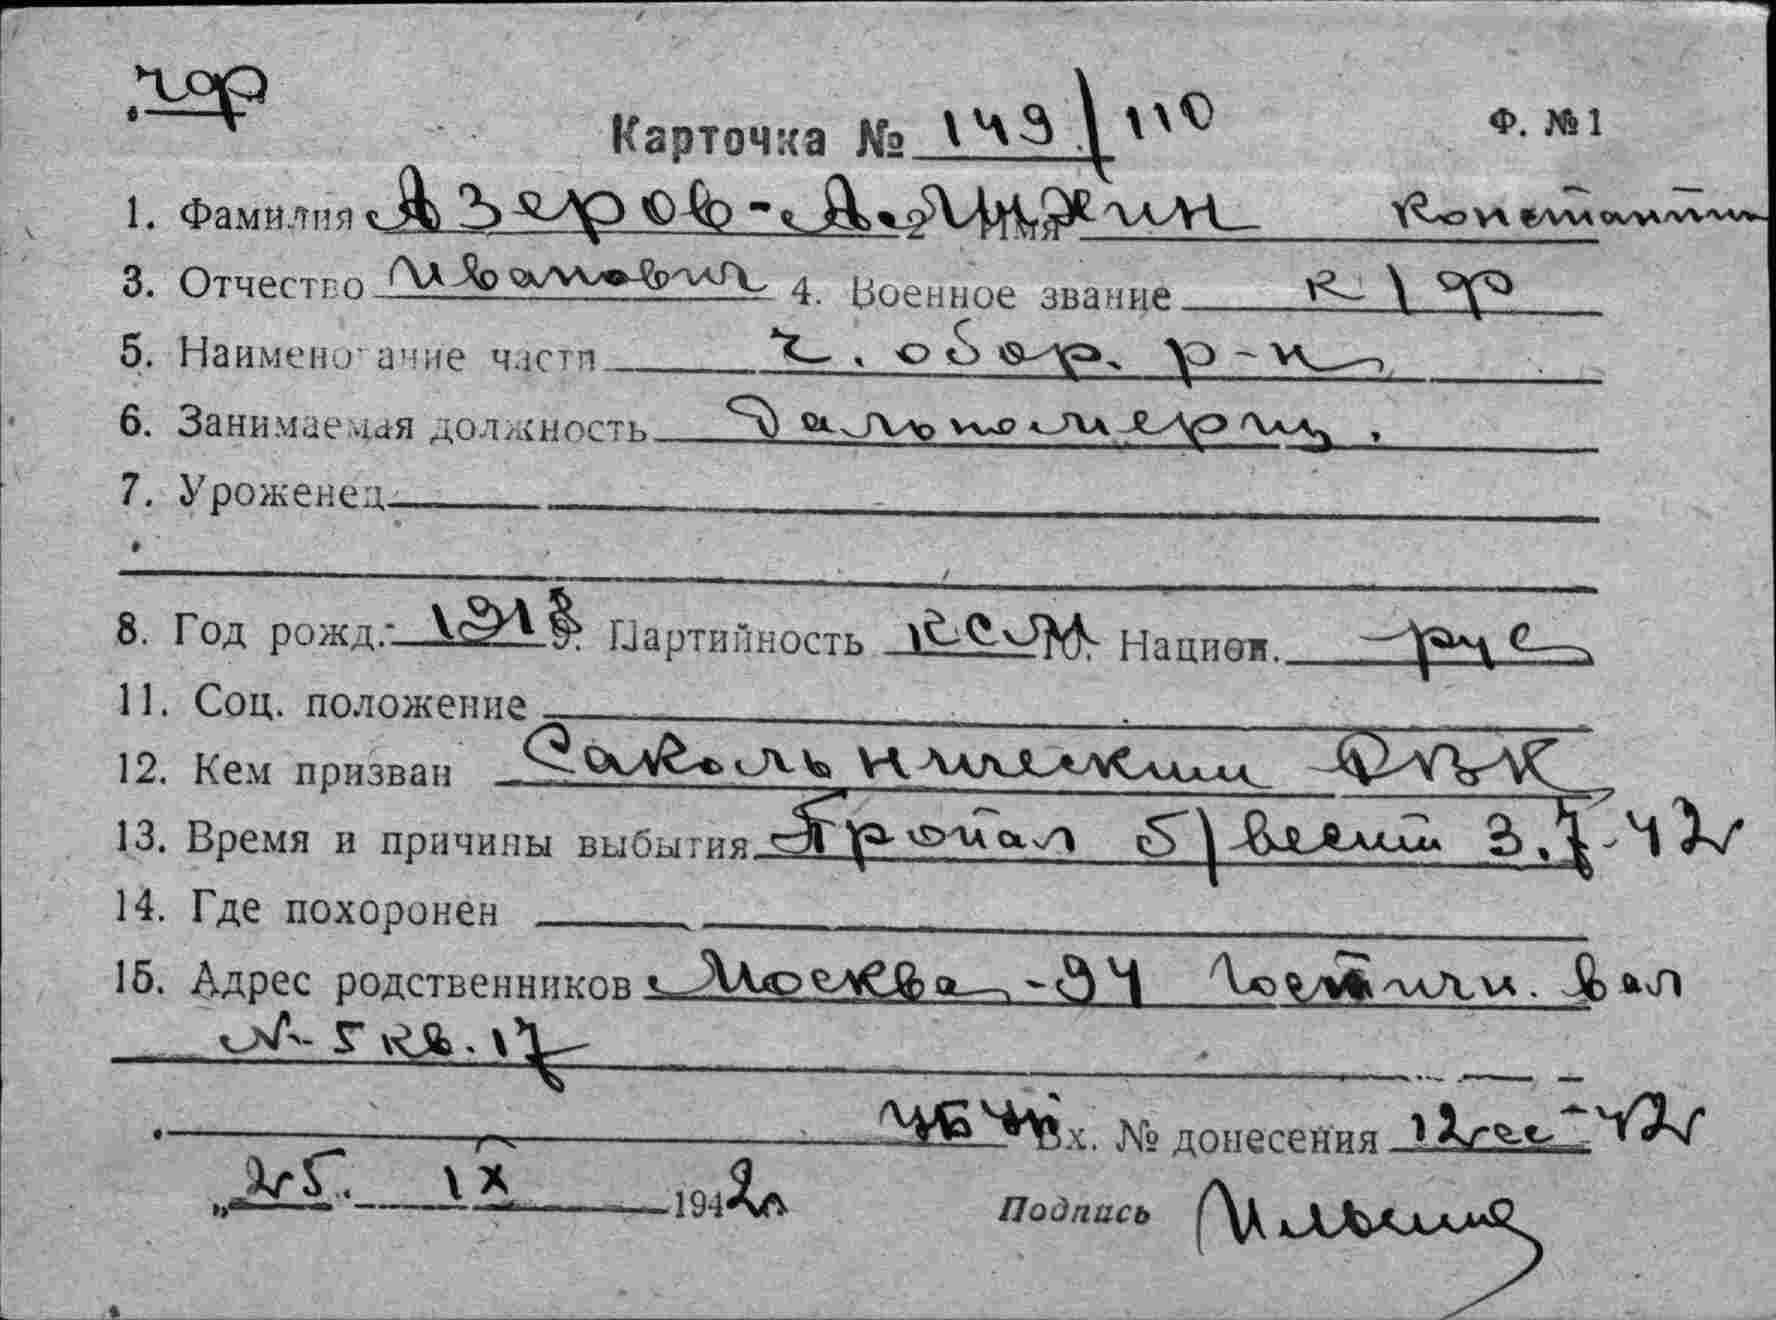 чф
Карточка № 149/110 Ф. №1
1. Фамилия Азеров-Аляхин 2. Имя Константин
3. Отчество Иванович 4. Военное звание к/ф
5. Наименование части Ч. обор. р-н
6. Занимаемая должность Дальномерщ.
7. Уроженец
8. Год рожд. 1918 9. Партийность КСМ 10. Национ. рус
11. Соц. положение
12. Кем призван Сакольническим РВК
13. Время и причины выбытия Пропал б/вести 3.7-42г
14. Где похоронен
15. Адрес родственников Москва-94 вал
№ 5 кв. 17
Вх. № донесения 12сс-42г
„25. IX 1942г Подпись Ильина